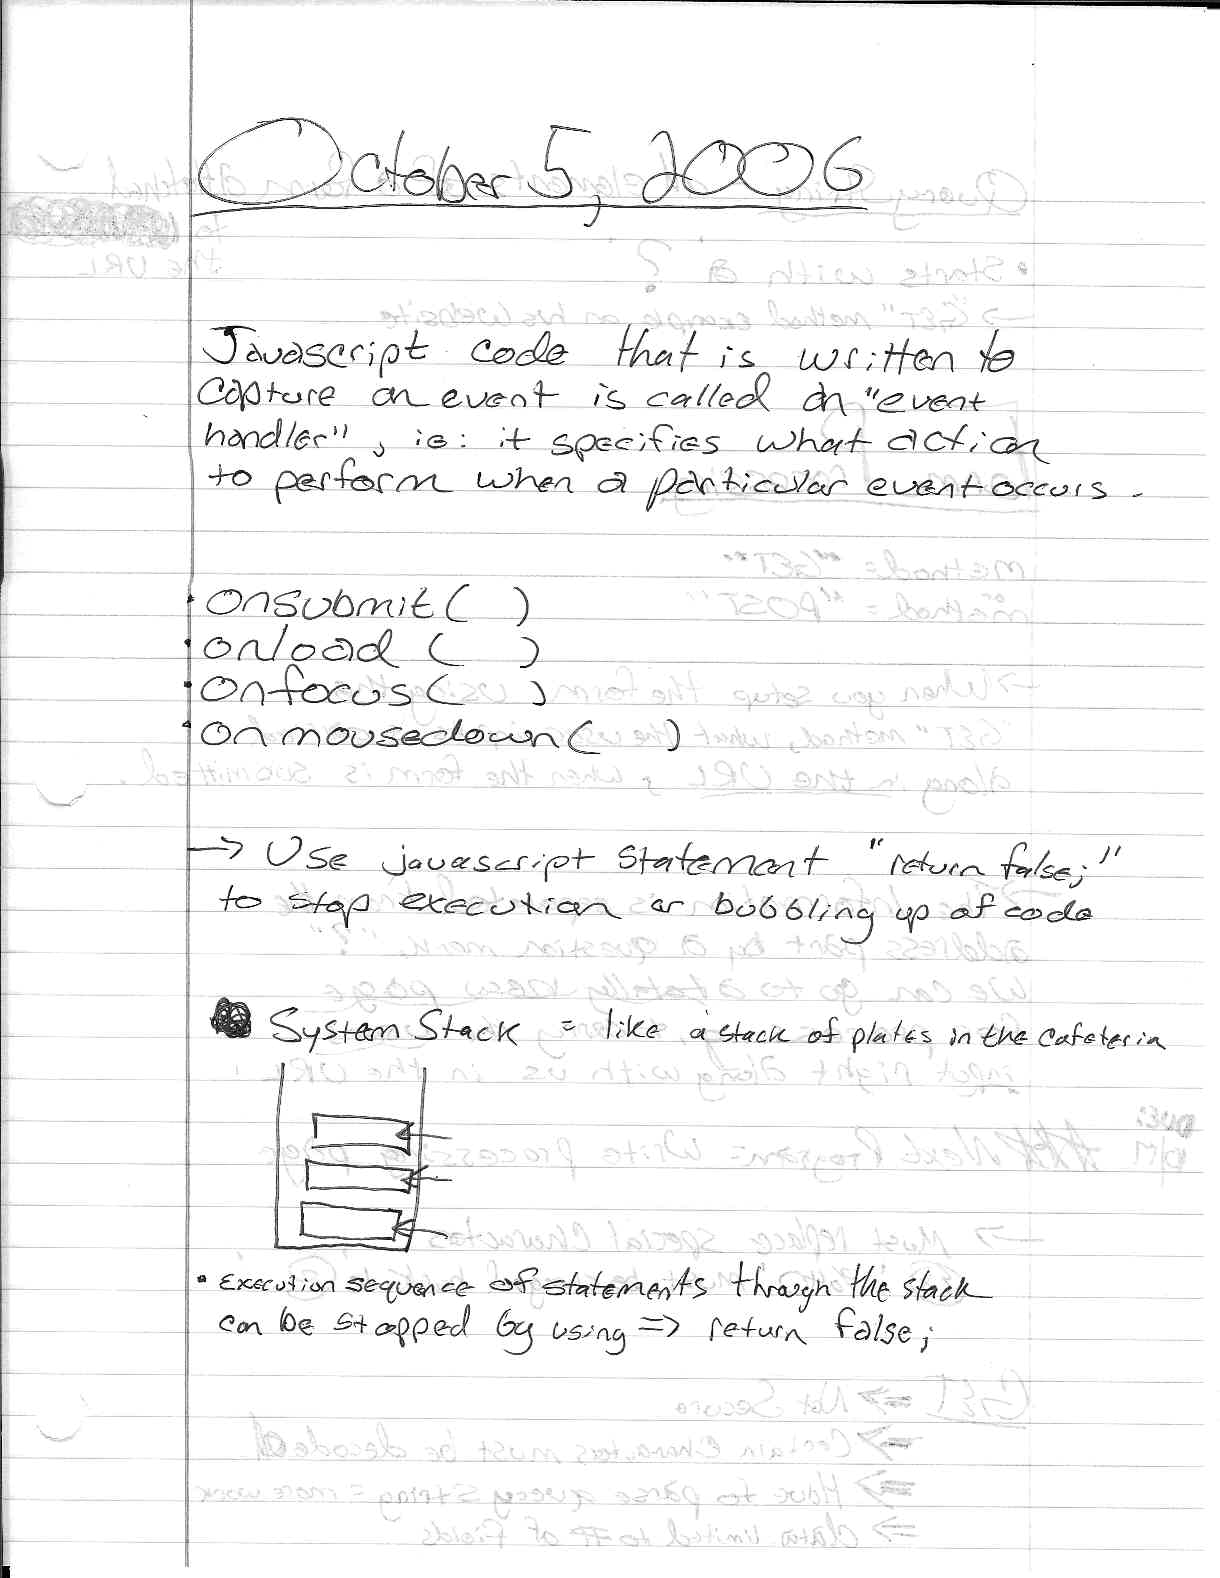 October 5, 2006
Javascript code that is written to
capture an event is called an "event
handler", ie: it specifies what action
to perform when a particular event occurs.
• onsubmit( )
• onload ( )
• onfocus( )
• onmousedown( )
→ Use javascript statement "return false;"
to stop execution or bubbling up of code
System Stack = like a stack of plates in the cafeteria
• Execution sequence of statements through the stack
can be stopped by using => return false;